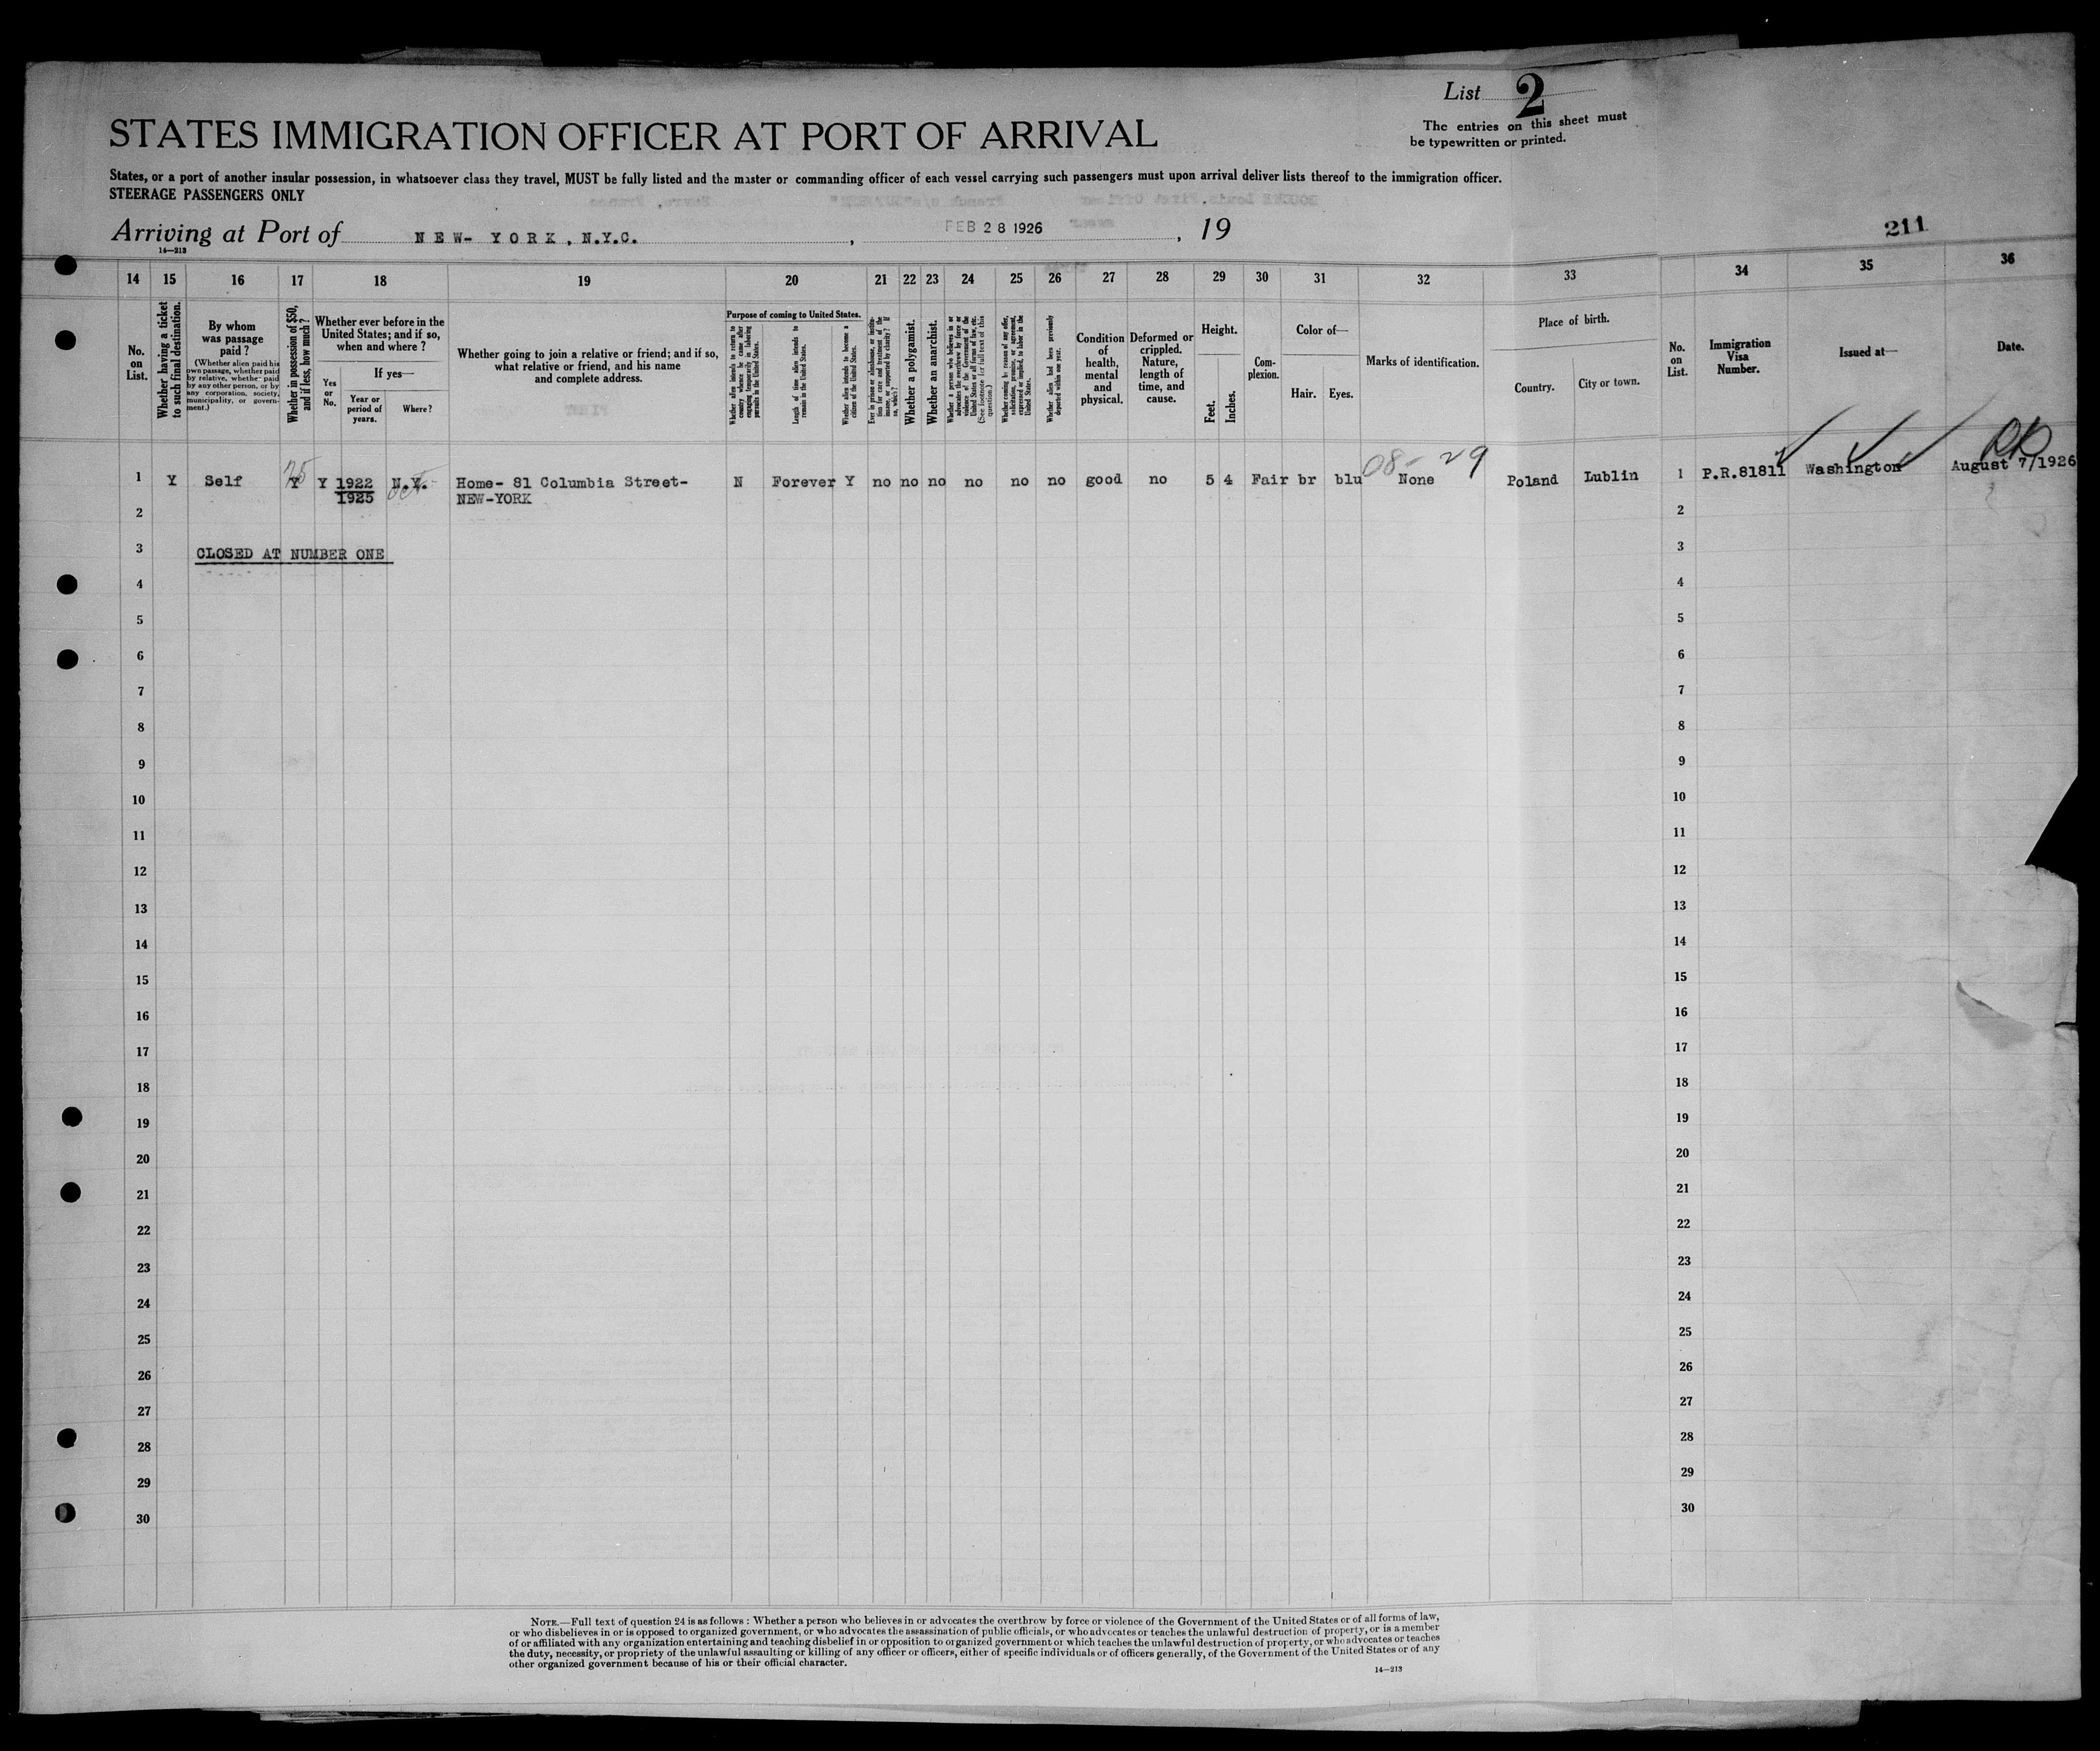 List 2
The entries on this sheet must
be typewritten or printed.
STATES IMMIGRATION OFFICER AT PORT OF ARRIVAL
States, or a port of another insular possession, in whatsoever class they travel, MUST be fully listed and the master or commanding officer of each vessel carrying such passengers must upon arrival deliver lists thereof to the immigration officer.
STEERAGE PASSENGERS ONLY
Arriving at Port of NEW- YORK, N.Y.C. , FEB 28 1926 , 19
14—213
211
14 15 16 17 18 19 20 21 22 23 24 25 26 27 28 29 30 31 32 33 34 35 36
No. on List.
Whether having a ticket to such final destination.
By whom was passage paid?
(Whether alien paid his own passage, whether paid by relative, whether paid by any other person, or by any corporation, society, municipality, or government.)
Whether in possession of $50, and if less, how much?
Whether ever before in the United States; and if so, when and where?
Yes or No.
If yes—
Year or period of years.
Where?
Whether going to join a relative or friend; and if so, what relative or friend, and his name and complete address.
Purpose of coming to United States.
Whether alien intends to return to country whence he came after engaging temporarily in laboring pursuits in the United States.
Length of time alien intends to remain in the United States.
Whether alien intends to become a citizen of the United States.
Ever in prison or almshouse, or institution for care and treatment of the insane, or supported by charity? If so, which?
Whether a polygamist.
Whether an anarchist.
Whether a person who believes in or advocates the overthrow by force or violence of the Government of the United States or all forms of law, etc. (See footnote for full text of this question.)
Whether coming by reason of any offer, solicitation, promise, or agreement, expressed or implied, to labor in the United States.
Whether alien had been previously deported within one year.
Condition of health, mental and physical.
Deformed or crippled. Nature, length of time, and cause.
Height.
Feet.
Inches.
Complexion.
Color of—
Hair.
Eyes.
Marks of identification.
Place of birth.
Country.
City or town.
No. on List.
Immigration Visa Number.
Issued at—
Date.
1 Y Self Y 25 Y 1922 N.Y. Home- 81 Columbia Street- N Forever Y no no no no no no good no 5 4 Fair br blu 08- 29 None Poland Lublin 1 P.R.81811 Washington August 7/1926
1925 Oct NEW-YORK
2 2
3 CLOSED AT NUMBER ONE 3
4 4
5 5
6 6
7 7
8 8
9 9
10 10
11 11
12 12
13 13
14 14
15 15
16 16
17 17
18 18
19 19
20 20
21 21
22 22
23 23
24 24
25 25
26 26
27 27
28 28
29 29
30 30
NOTE.—Full text of question 24 is as follows: Whether a person who believes in or advocates the overthrow by force or violence of the Government of the United States or of all forms of law,
or who disbelieves in or is opposed to organized government, or who advocates the assassination of public officials, or who advocates or teaches the unlawful destruction of property, or is a member
of or affiliated with any organization entertaining and teaching disbelief in or opposition to organized government or which teaches the unlawful destruction of property, or who advocates or teaches
the duty, necessity, or propriety of the unlawful assaulting or killing of any officer or officers, either of specific individuals or of officers generally, of the Government of the United States or of any
other organized government because of his or their official character.
14—213